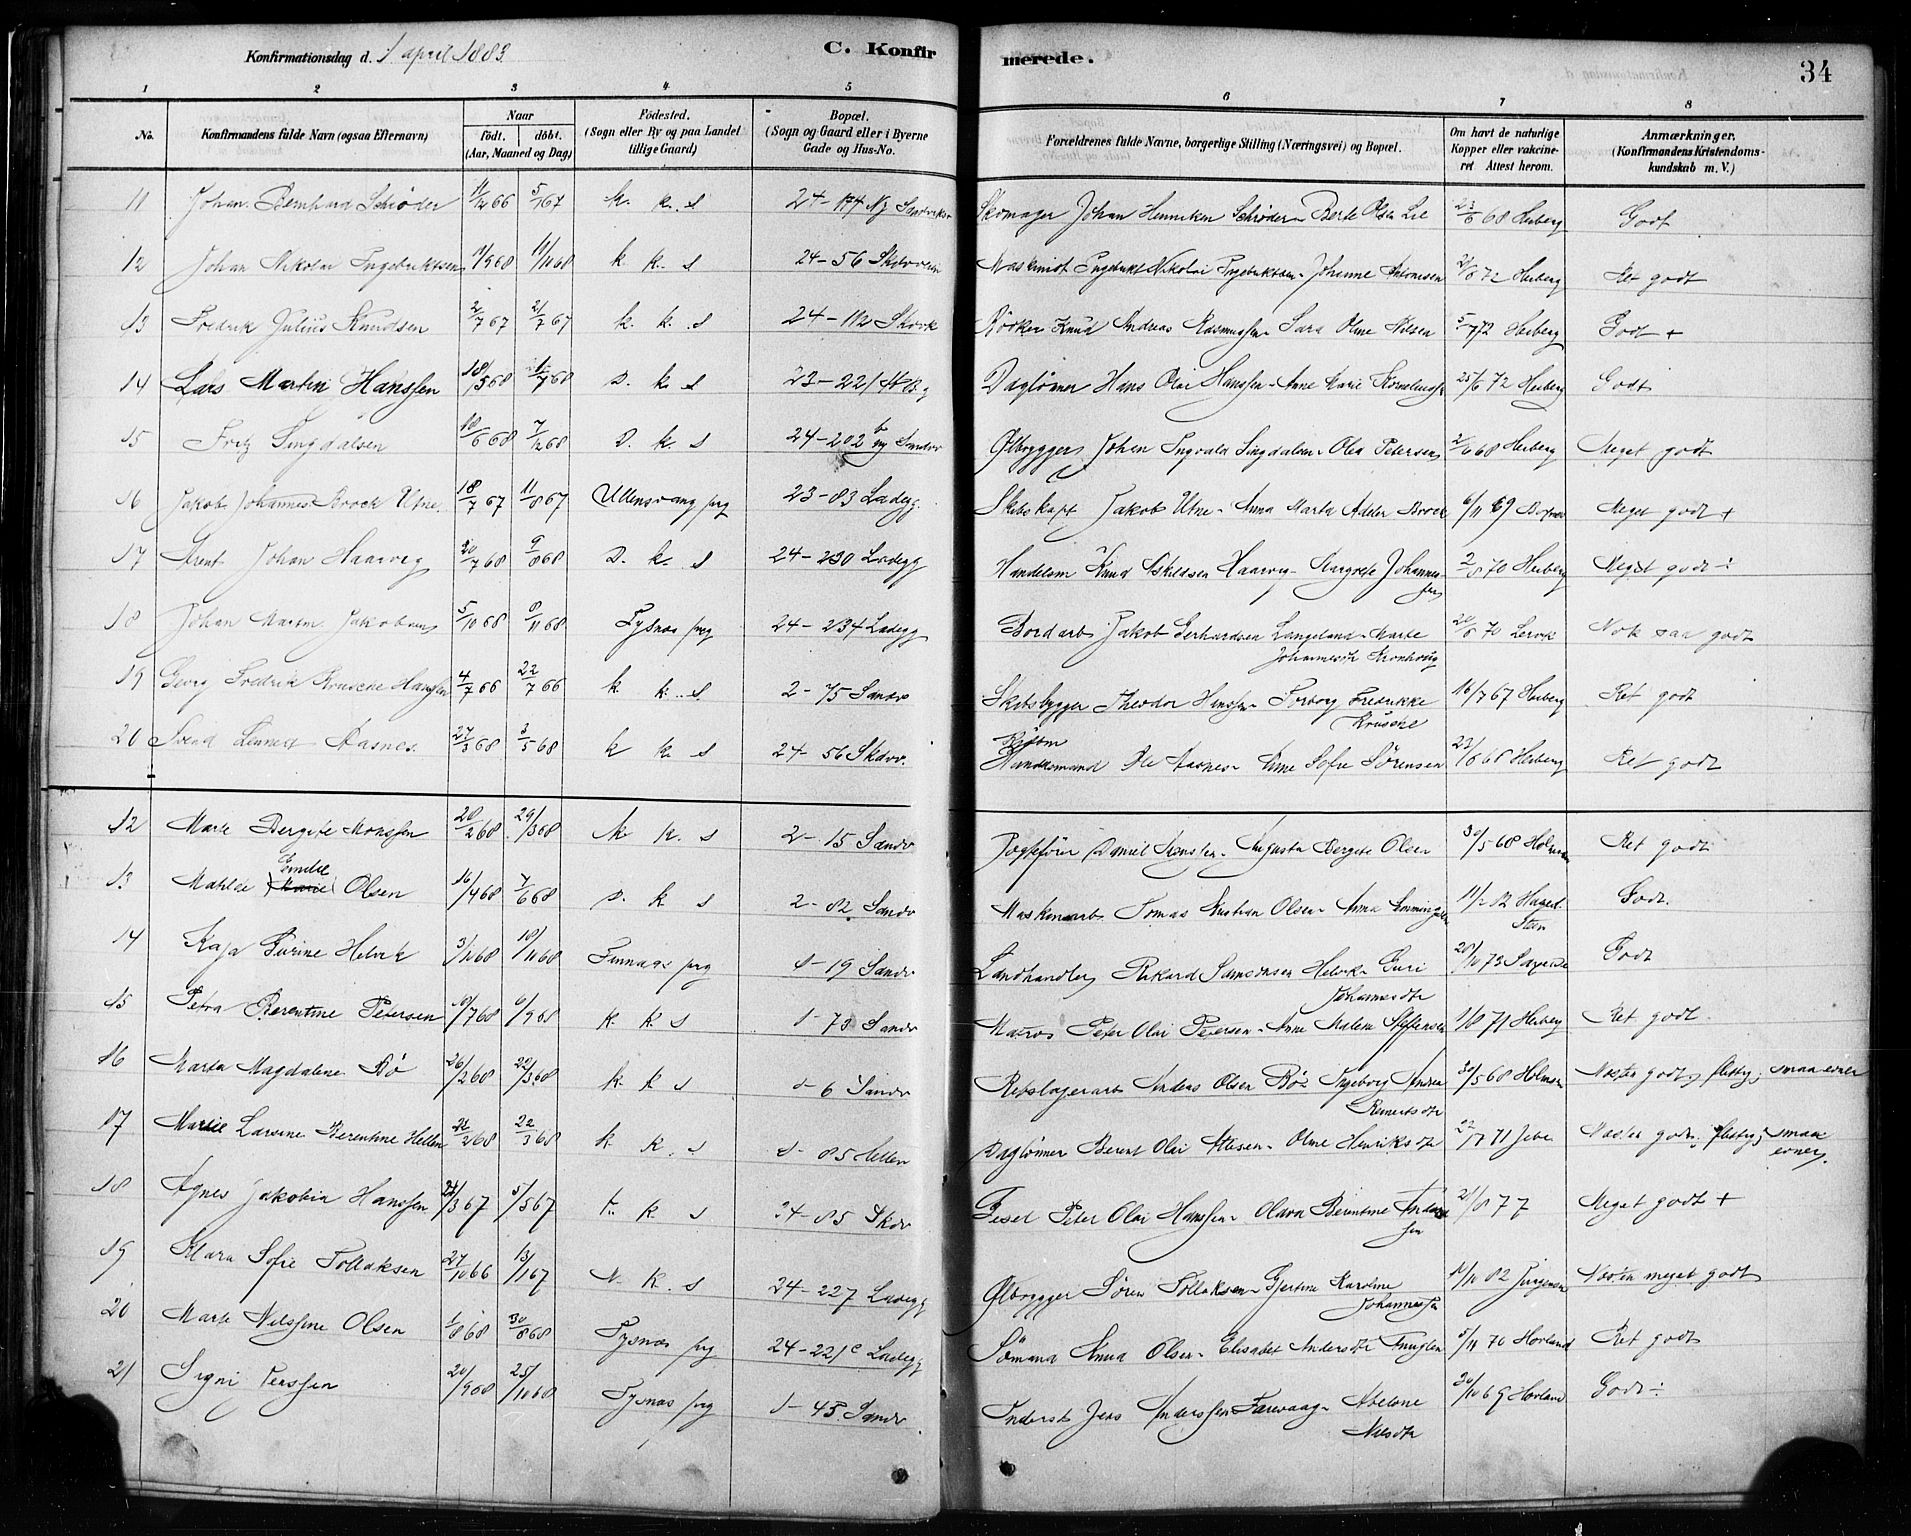 Konfirmationsdag d. 1 april 1883. C. Konfirmerede. 34
1 2 3 4 5 6 7 8
No. Konfirmandens fulde Navn (ogsaa Efternavn) Naar födt. döbt. (Aar, Maaned og Dag) Födested. (Sogn eller By og paa Landet tillige Gaard) Bopæl. (Sogn og Gaard eller i Byerne Gade og Hus-No. Forældrenes fulde Navne, borgerlige Stilling (Næringsvei) og Bopæl. Om havt de naturlige Kopper eller vakcineret Attest herom. Anmærkninger. (Konfirmandens Kristendomskundskab m. V.)
11 Johan Bernhard Schrøder 11/12 66 5/1 67 k. k. s 24-174 Ny Sandviksv Skomager Johan Henriken Schrøder - Berte Olsn Lie 23/6 68 Herberg Godt
12 Johan Nikolai Ingebriktsen 1/9 68 11/10 68 k k. s 24-56 Skivevein Maskinist Ingebrikt Nikolai Ingebriktsen - Johanne Antonisen 2/8 72 Herberg Ret godt
13 Fredrik Julius Knudsen 2/7 67 21/7 67 k. k. s 24-112 Knud Andreas Rasmussen - Sara Oline Nilsen 5/7 72 Herberg Godt +
14 Lars Martin Hanssen 18/5 68 1/7 68 D. k. s 23-221 Daglønner Hans Olai Hanssen - Anne Marie 25/6 72 Herberg Godt
15 Fritz Singdalsen 10/6 68 7/12 68 D. k. s 24-202 b ny Sandv Ølbrygger Johan Ingvald Singdalsen - Olea Petersen 2/6 68 Herberg Meget godt
16 Jakob Johannes Brock Utne 18/7 67 11/8 67 Ullensvang prg 23-83 Ladegg. Skibskapt Jakob Utne - Anna Marta Adeler Brock 6/11 69 Meget godt +
17 Arent Johan Haarvig 20/7 68 9/8 68 D. k. s 24-230 Ladegg Handelsm Knud Askildsen Haarvig - Margrete Johannessen 2/8 70 Herberg Meget godt ÷
18 Johan Martin Jakobsen 5/10 68 8/11 68 Tysnæs prg 24-234 Ladegg Bordarb Jakob Gerhardsen Langeland - Marte Johannesdtr 20/6 70 Nok saa godt
19 Georg Fredrik Krusche Hanssen 4/7 66 22/7 66 k k. s 2-75 Sandv Skibsbygger Theodor Hanssen - Torborg Fredrikke Krusche 16/7 67 Herberg Ret godt
20 Svend Aasnes 27/3 68 3/5 68 k k s 24-56 Skivev. Handelsmand Ole Aasnes - Anne Sofie Sørensen 23/6 68 Herberg Ret godt
12 Marte Bergete Monssen 20/2 68 29/3 68 k k. s 2-15 Sandv Daniel - Augusta Bergete Olsen 30/5 68 Holmsen Ret godt
13 Matilde Emilie (Marie) Olsen 16/4 68 7/6 68 D. k. s 2-82 Sandv Maskinarb. Tomas Kristian Olsen - Anna 11/2 82 Godt.
14 Kaja Gurine Helvik 3/10 68 18/10 68 Finnaas prg 1-19 Sandv Landhandler Rikard Samsonsen Helvik - Guri Johannesdtr 28/10 73 Godt
15 Petra Berentine Petersen 8/7 68 6/9 68 k. k s 1-73 Sandv Matros Peter Olai Petersen - Anne Malene Steffensen 1/8 71 Herberg Ret godt
16 Marta Magdalene Bö 26/2 68 22/3 68 k. k s 1-6 Sandv Rebslagerarb Anders Olsen Bö - Ingeborg Andrea Reinertsdtr 30/5 68 Holmsen Næsten godt, flittig; smaa evner
17 Marie Larsine Berentine Hellen 21/2 68 22/3 68 k k. s 1-85 Hellen Daglønner Berent Olai - Oline Henriksdtr 22/7 71 Næsten godt, flittig; smaa evner.
18 Agnes Jakobia Hanssen 24/3 67 5/5 67 k. k. s 24-85 Skiv Peter Olai Hanssen - Olava Berentine Andersen 21/8 77 Meget godt +
19 Klara Sofie Tollaksen 27/10 66 13/1 67 N. K. s 24-227 Ladegg Ølbrygger Sören Tollaksen - Gjertine Karoline Johannessen 11/10 82 Jørgensen Næsten meget godt
20 Marte Nilssine Olsen 1/8 68 30/8 68 Tysnæs prg 24-221 c Ladegg Sömand Olsen - Elisabet Andersdtr 5/11 70 Hovland Ret godt
21 Signi Jenssen 20/9 68 25/10 68 Tysnæs prg 1-45 Sandv Jens Anderssen Færevaag - Abelone Nilsdtr 30/10 69 Hovland Godt ÷